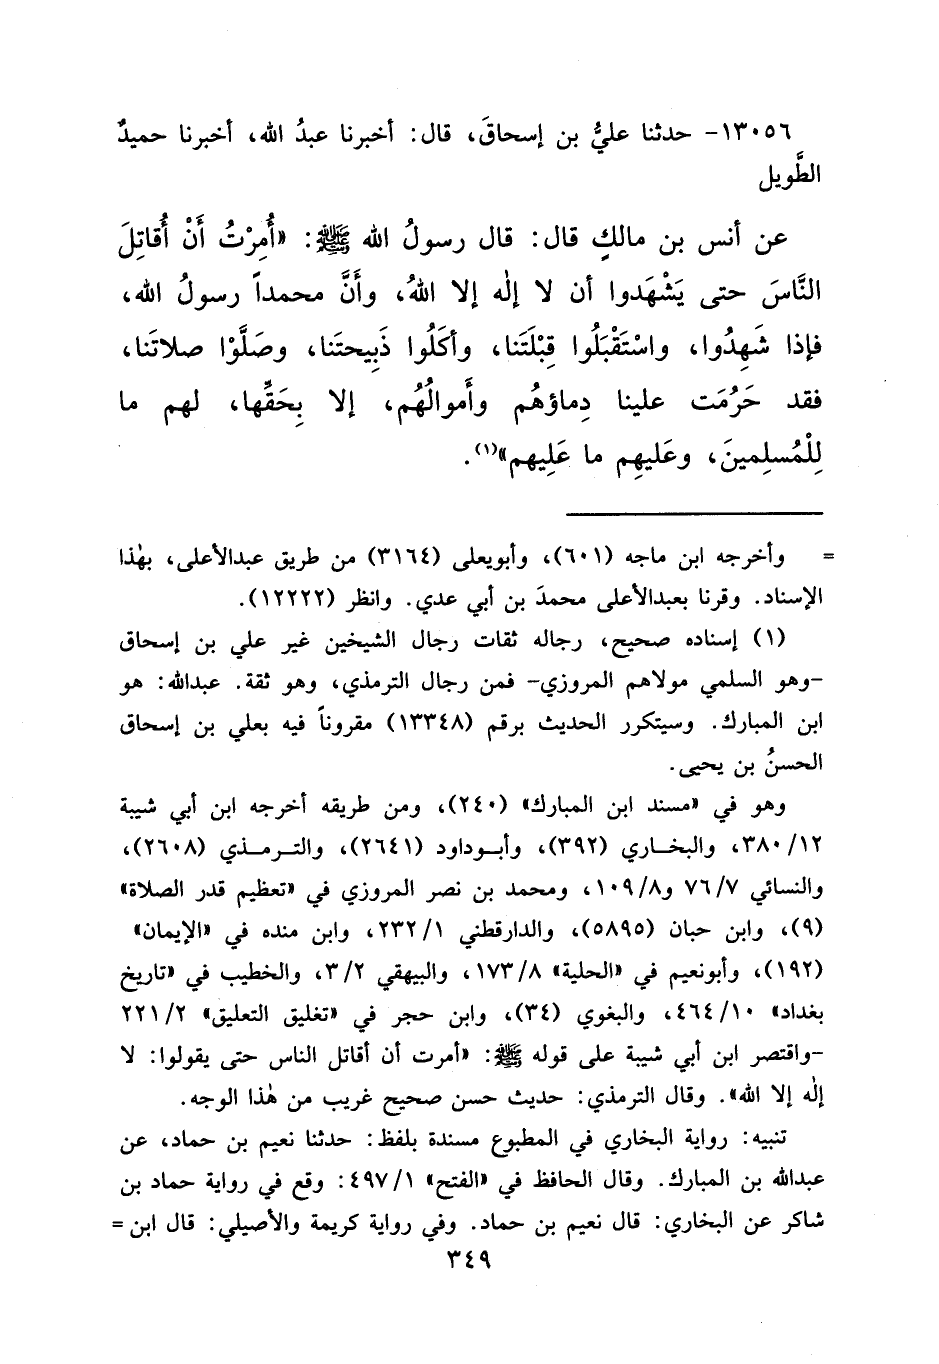 ١٣٠٥٦- حدثنا عليُّ بن إسحاقَ، قال: أخبرنا عبدُ الله، أخبرنا حميدٌ
الطَّويل
عن أنس بن مالكٍ قال: قال رسولُ الله ﷺ: «أُمِرْتُ أَنْ أُقاتِلَ
النَّاسَ حتى يَشْهَدوا أن لا إلٰه إلا اللهُ، وأَنَّ محمداً رسولُ الله،
فإذا شَهِدُوا، واسْتَقْبَلُوا قِبْلَتَنا، وأكَلُوا ذَبِيحتَنا، وصَلَّوْا صلاتَنا،
فقد حَرُمَت علينا دِماؤهُم وأَموالُهُم، إلا بِحَقِّها، لهم ما
لِلْمُسلِمينَ، وعَليهِم ما عَلِيهم»(١).
= وأخرجه ابن ماجه (٦٠١)، وأبويعلى (٣١٦٤) من طريق عبدالأعلى، بهٰذا
الإسناد. وقرنا بعبدالأعلى محمدَ بن أبي عدي. وانظر (١٢٢٢٢).
(١) إسناده صحيح، رجاله ثقات رجال الشيخين غير علي بن إسحاق
-وهو السلمي مولاهم المروزي- فمن رجال الترمذي، وهو ثقة. عبدالله: هو
ابن المبارك. وسيتكرر الحديث برقم (١٣٣٤٨) مقروناً فيه بعلي بن إسحاق
الحسنُ بن يحيى.
وهو في «مسند ابن المبارك» (٢٤٠)، ومن طريقه أخرجه ابن أبي شيبة
٣٨٠/١٢، والبخـاري (٣٩٢)، وأبـوداود (٢٦٤١)، والتـرمـذي (٢٦٠٨)،
والنسائي ٧٦/٧ و١٠٩/٨، ومحمد بن نصر المروزي في «تعظيم قدر الصلاة»
(٩)، وابن حبان (٥٨٩٥)، والدارقطني ٢٣٢/١، وابن منده في «الإيمان»
(١٩٢)، وأبونعيم في «الحلية» ١٧٣/٨، والبيهقي ٣/٢، والخطيب في «تاريخ
بغداد» ٤٦٤/١٠، والبغوي (٣٤)، وابن حجر في «تغليق التعليق» ٢٢١/٢
-واقتصر ابن أبي شيبة على قوله ﷺ: «أمرت أن أقاتل الناس حتى يقولوا: لا
إلٰه إلا الله». وقال الترمذي: حديث حسن صحيح غريب من هٰذا الوجه.
تنبيه: رواية البخاري في المطبوع مسندة بلفظ: حدثنا نعيم بن حماد، عن
عبدالله بن المبارك. وقال الحافظ في «الفتح» ٤٩٧/١: وقع في رواية حماد بن
شاكر عن البخاري: قال نعيم بن حماد. وفي رواية كريمة والأصيلي: قال ابن =
٣٤٩